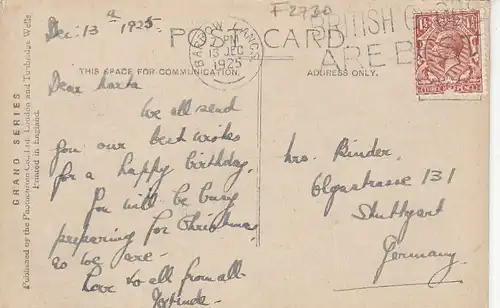 Dec. 13th 1925
F2730
POST CARD
BARROW LANCS
PM
13 DEC
1925
BRITISH GOODS
ARE B
THIS SPACE FOR COMMUNICATION.
ADDRESS ONLY.
Dear Marta
We all send
you our best wishes
for a happy birthday.
You will be busy
preparing for Christmas
as we are.
Love to all from all.
Mrs. Binder.
Olgastrasse 131
Stuttgart
Germany.
GRAND SERIES
Published by the Photochrom Co. Ltd. London and Tunbridge Wells
Printed in England.